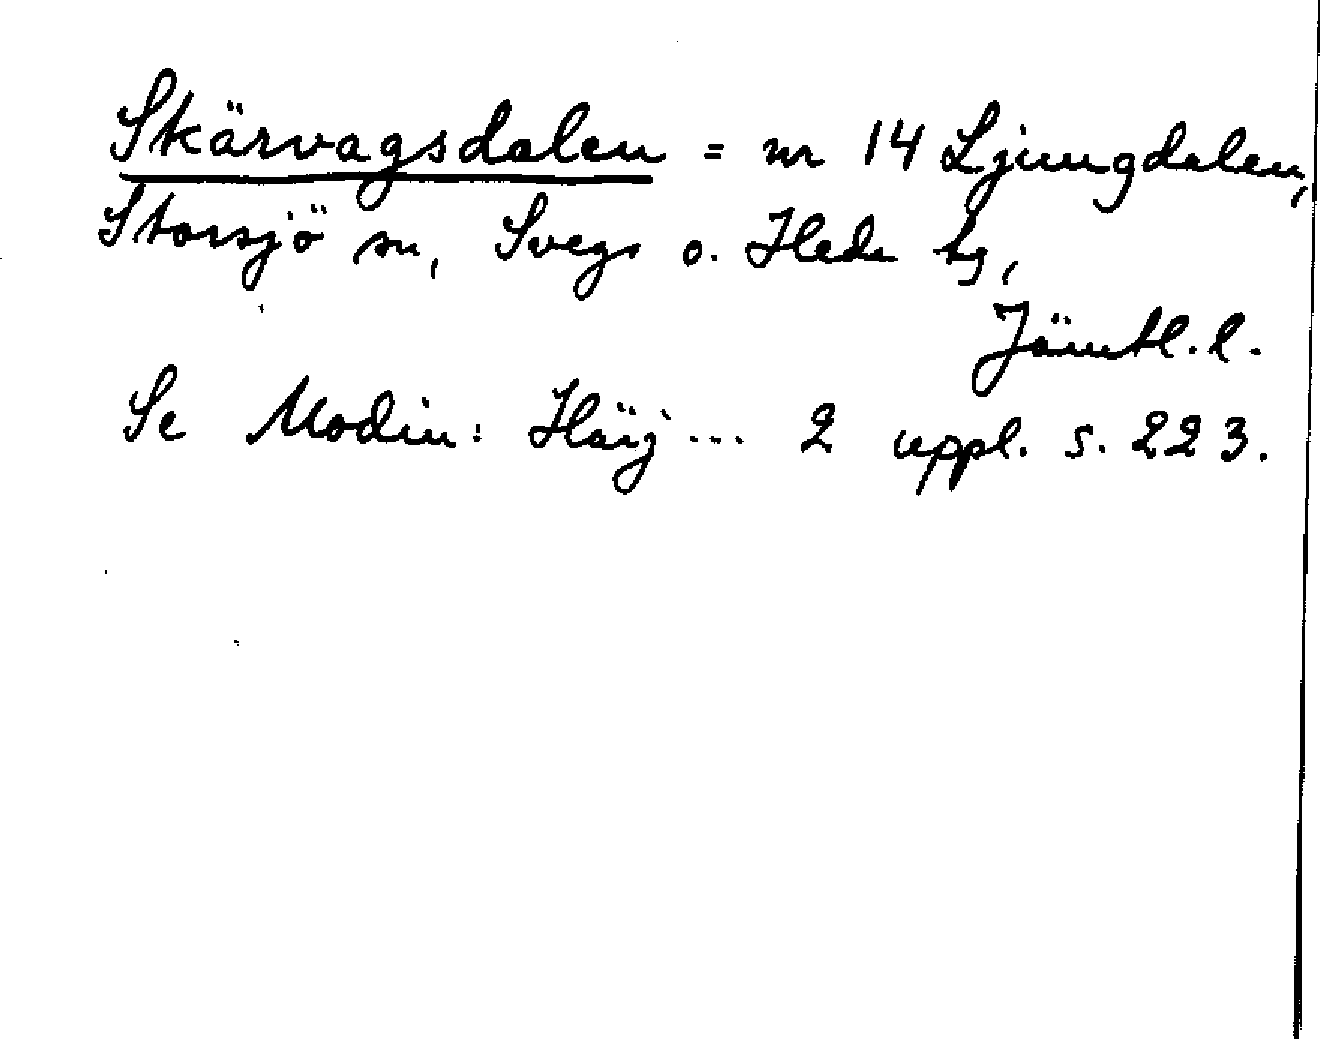 Skärvagsdalen = nr 14 Ljungdalen,
Storsjö sn, Svegs o. Hede tg,
Jämtl. l.
Se Modin: Härj... 2 uppl. s. 223.